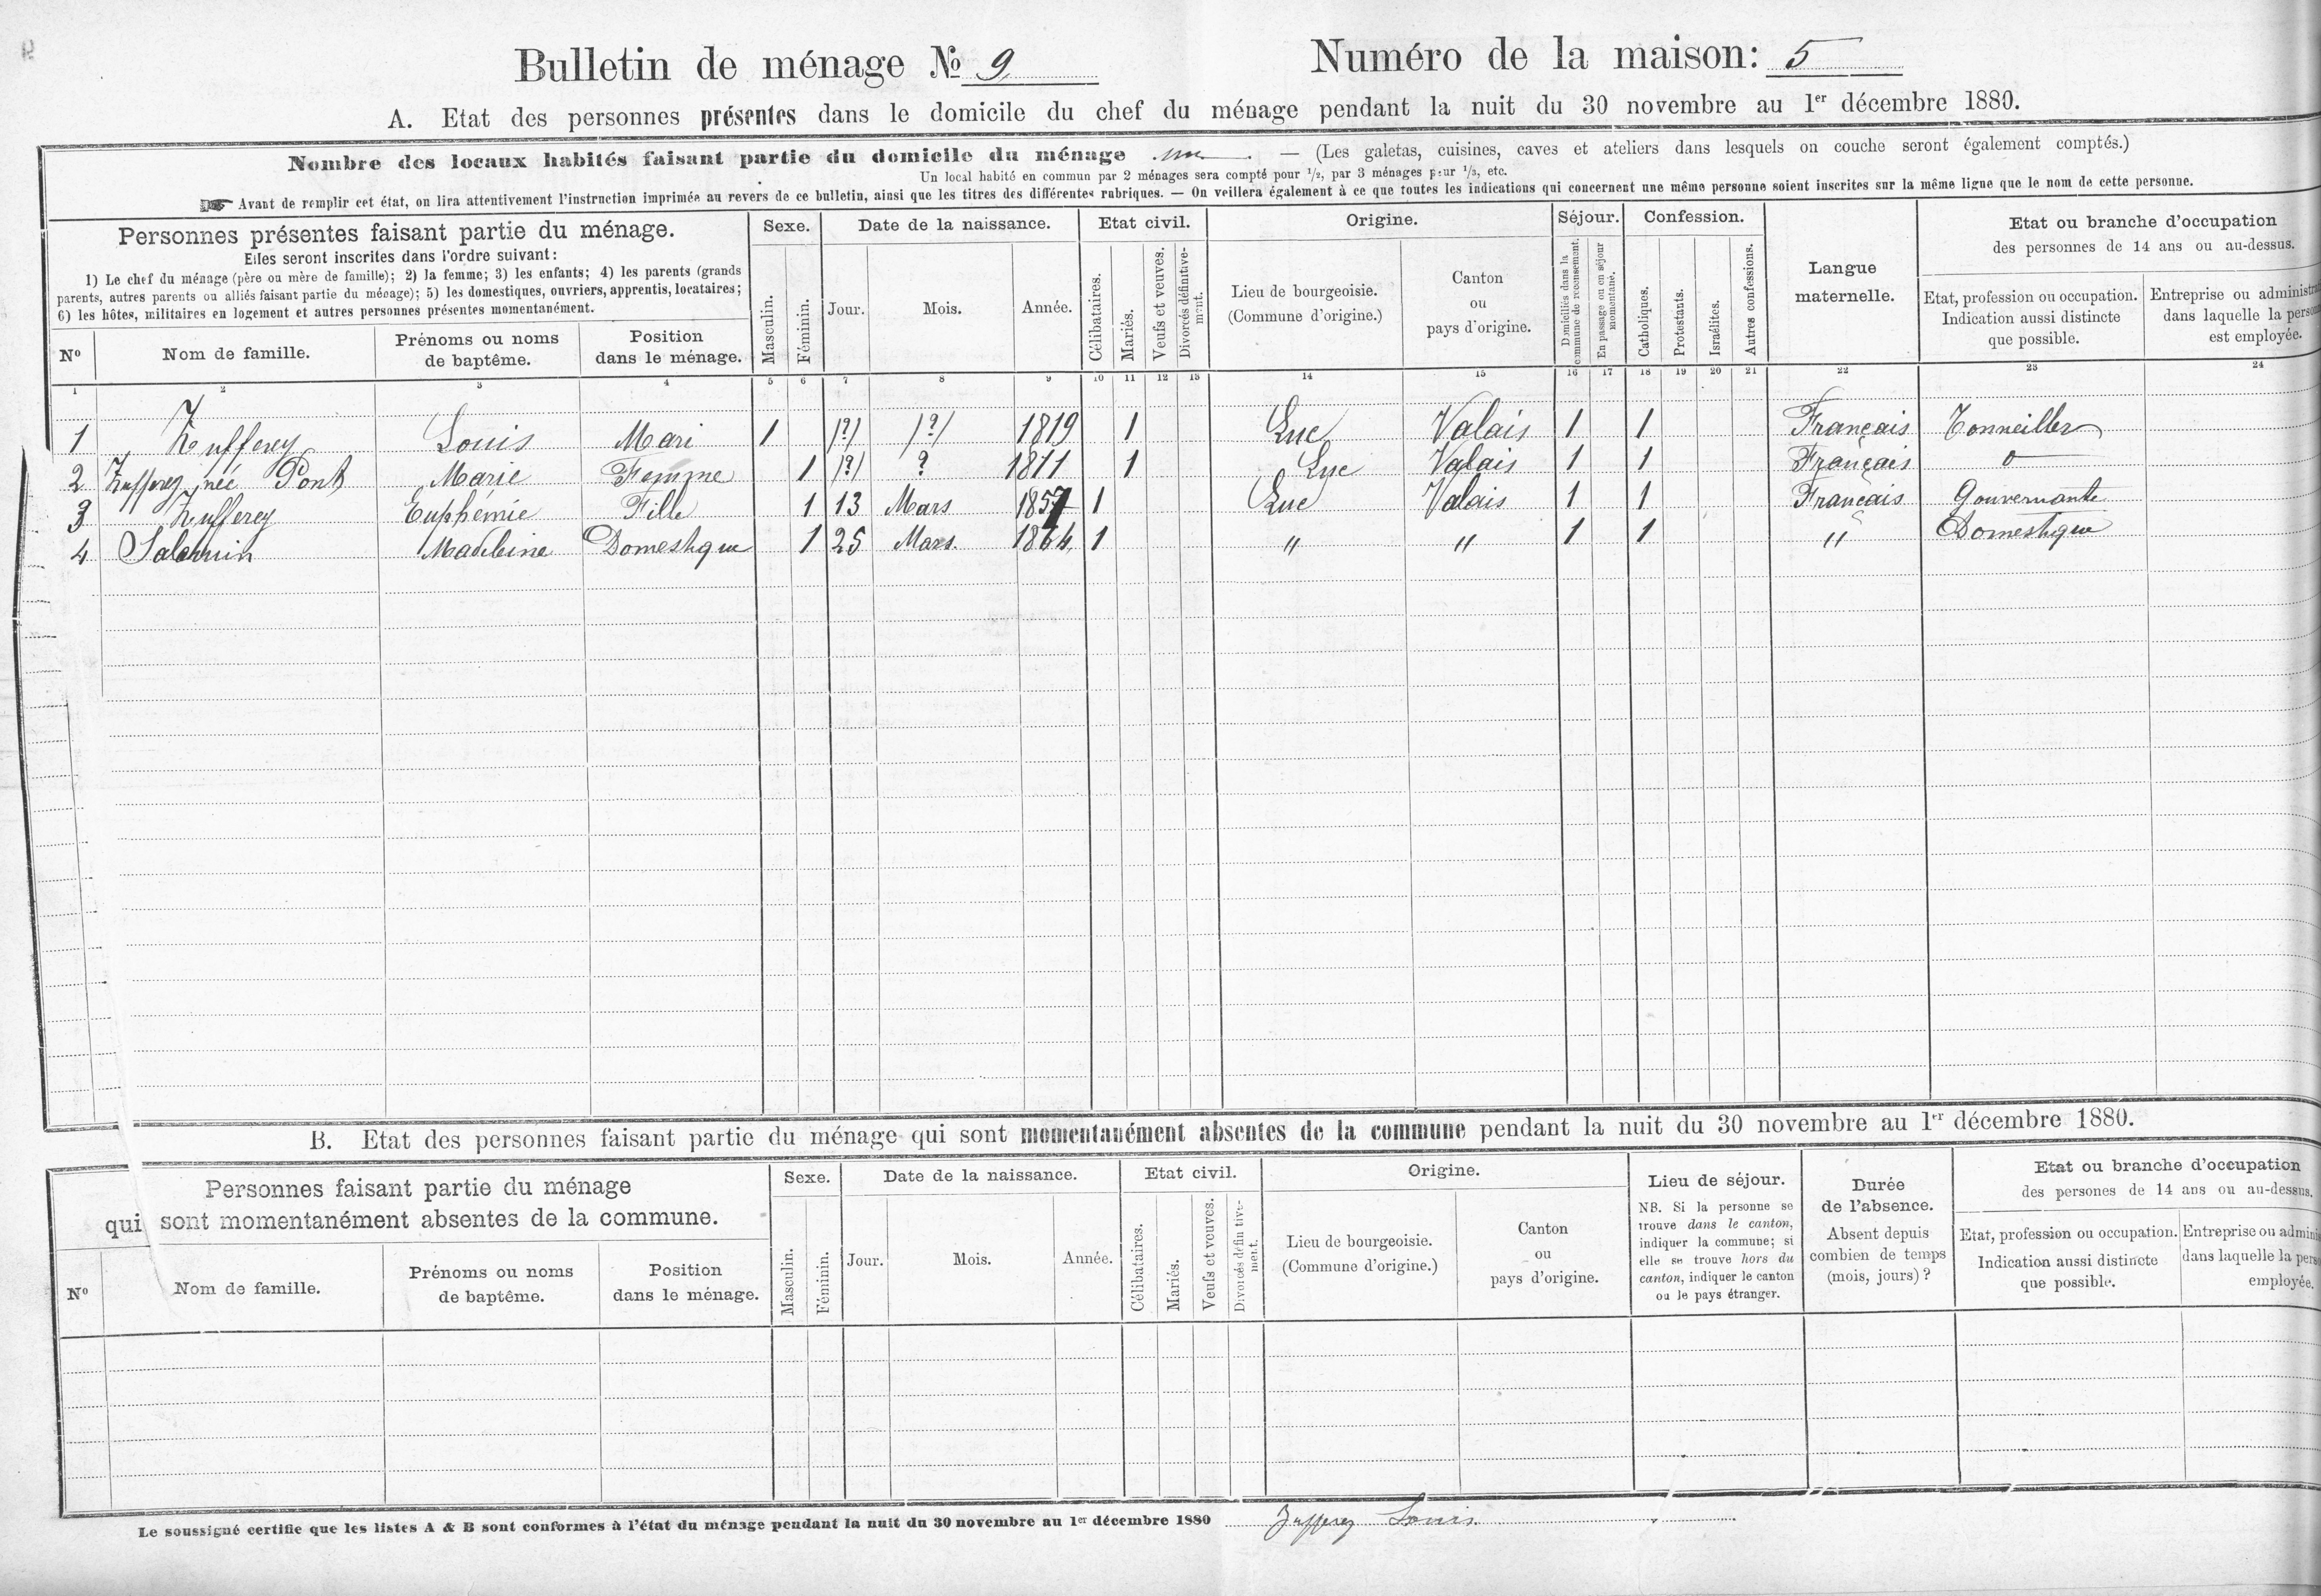 Bulletin de ménage № 9 Numéro de la maison: 5
A. Etat des personnes présentes dans le domicile du chef du ménage pendant la nuit du 30 novembre au 1er décembre 1880.
Nombre des locaux habités faisant partie du domicile du ménage une. — (Les galetas, cuisines, caves et ateliers dans lesquels on couche seront également comptés.)
Un local habité en commun par 2 ménages sera compté pour 1/2, par 3 ménages pour 1/3, etc.
☞ Avant de remplir cet état, on lira attentivement l'instruction imprimée au revers de ce bulletin, ainsi que les titres des différentes rubriques. — On veillera également à ce que toutes les indications qui concernent une même personne soient inscrites sur la même ligne que le nom de cette personne.
Personnes présentes faisant partie du ménage.
Elles seront inscrites dans l'ordre suivant:
1) Le chef du ménage (père ou mère de famille); 2) la femme; 3) les enfants; 4) les parents (grands
parents, autres parents ou alliés faisant partie du ménage); 5) les domestiques, ouvriers, apprentis, locataires;
6) les hôtes, militaires en logement et autres personnes présentes momentanément.
Nº
Nom de famille.
Prénoms ou noms
de baptême.
Position
dans le ménage.
Sexe.
Masculin.
Féminin.
Date de la naissance.
Jour.
Mois.
Année.
Etat civil.
Célibataires.
Mariés.
Veufs et veuves.
Divorcés définitive-
ment.
Origine.
Lieu de bourgeoisie.
(Commune d'origine.)
Canton
ou
pays d'origine.
Séjour.
Domiciliés dans la
commune de recensement.
En passage ou en séjour
momentané.
Confession.
Catholiques.
Protestants.
Israélites.
Autres confessions.
Langue
maternelle.
Etat ou branche d'occupation
des personnes de 14 ans ou au-dessus.
Etat, profession ou occupation.
Indication aussi distincte
que possible.
Entreprise ou administra
dans laquelle la person
est employée.
1 2 3 4 5 6 7 8 9 10 11 12 13 14 15 16 17 18 19 20 21 22 23 24
1 Zufferey Louis Mari 1 1?1 1?1 1819 1 Luc Valais 1 1 Français Tonneiller
2 Zufferey née Pont Marie Femme 1 1?1 ? 1811 1 Luc Valais 1 1 Français o
3 Zufferey Euphémie Fille 1 13 Mars 1857 1 Luc Valais 1 1 Français Gouvernante
4 Salamin Madeleine Domestique 1 25 Mars. 1864 1 " " 1 1 " Domestique
B. Etat des personnes faisant partie du ménage qui sont momentanément absentes de la commune pendant la nuit du 30 novembre au 1er décembre 1880.
Personnes faisant partie du ménage
qui sont momentanément absentes de la commune.
Nº
Nom de famille.
Prénoms ou noms
de baptême.
Position
dans le ménage.
Sexe.
Masculin.
Féminin.
Date de la naissance.
Jour.
Mois.
Année.
Etat civil.
Célibataires.
Mariés.
Veufs et veuves.
Divorcés défin tive-
ment.
Origine.
Lieu de bourgeoisie.
(Commune d'origine.)
Canton
ou
pays d'origine.
Lieu de séjour.
NB. Si la personne se
trouve dans le canton,
indiquer la commune; si
elle se trouve hors du
canton, indiquer le canton
ou le pays étranger.
Durée
de l'absence.
Absent depuis
combien de temps
(mois, jours)?
Etat ou branche d'occupation
des persones de 14 ans ou au-dessus.
Etat, profession ou occupation.
Indication aussi distincte
que possible.
Entreprise ou adminis
dans laquelle la perso
employée.
Le soussigné certifie que les listes A & B sont conformes à l'état du ménage pendant la nuit du 30 novembre au 1er décembre 1880 Zufferey Louis